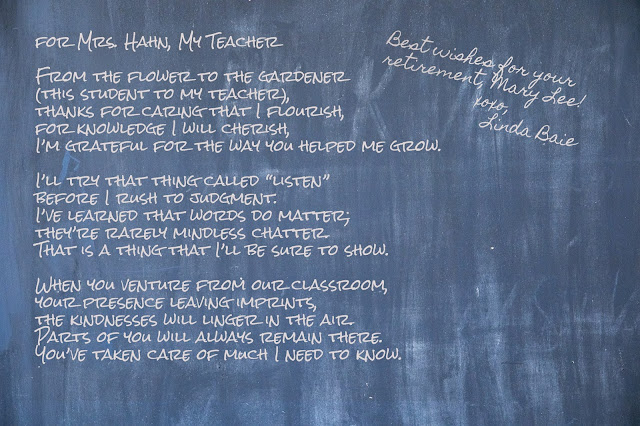 for Mrs. Hahn, My Teacher
From the flower to the gardener
(this student to my teacher),
thanks for caring that I flourish,
for knowledge I will cherish,
I'm grateful for the way you helped me grow.
I'll try that thing called "listen"
before I rush to judgment.
I've learned that words do matter;
they're rarely mindless chatter.
That is a thing that I'll be sure to show.
When you venture from our classroom,
your presence leaving imprints,
the kindnesses will linger in the air.
Parts of you will always remain there.
You've taken care of much I need to know.
Best wishes for your
retirement, Mary Lee!
xoxo,
Linda Baie